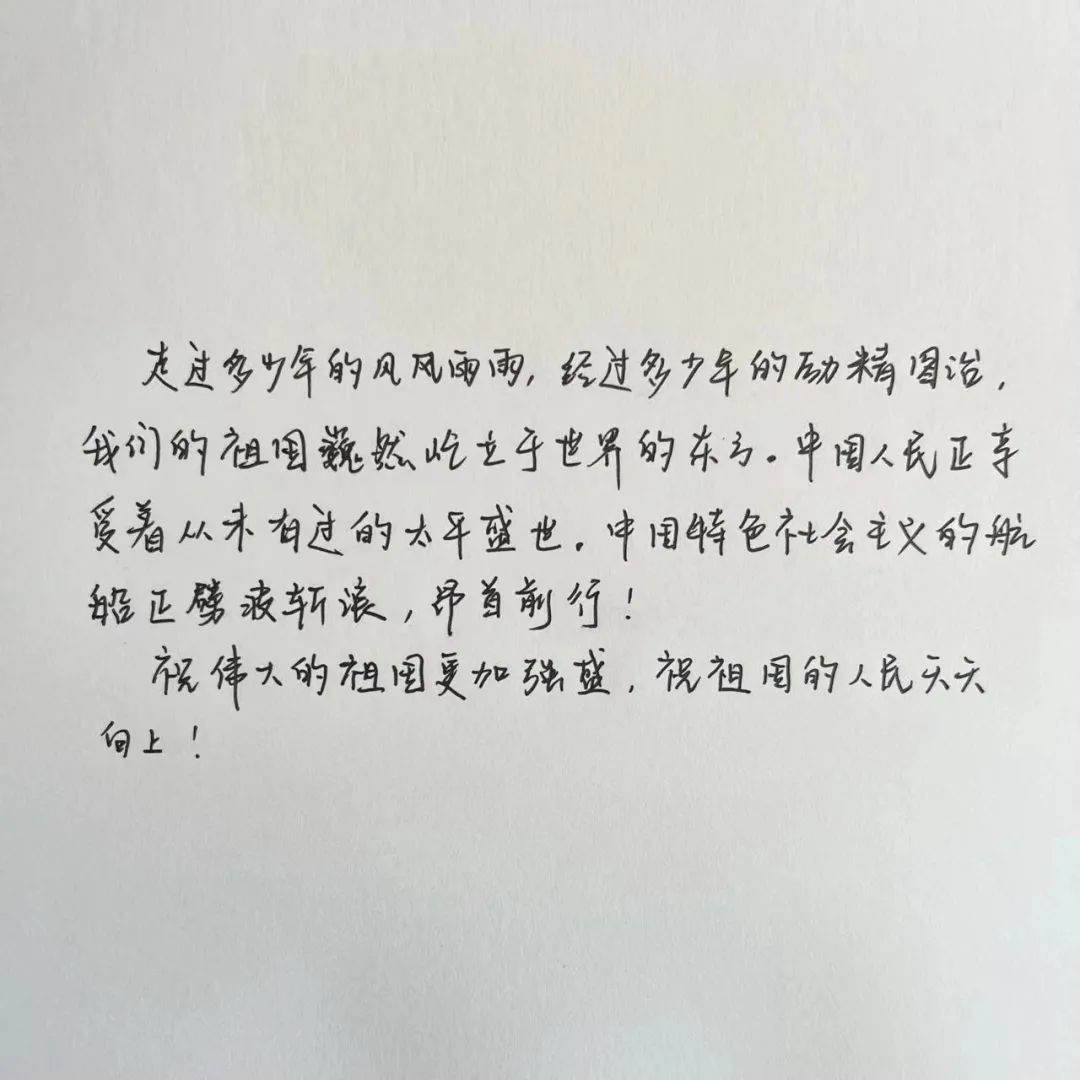 走过多少年的风风雨雨,经过多少年的励精图治,
我们的祖国巍然屹立于世界的东方。中国人民正享
受着从未有过的太平盛世。中国特色社会主义的航
船正劈波斩浪,昂首前行!
祝伟大的祖国更加强盛,祝祖国的人民天天
向上!